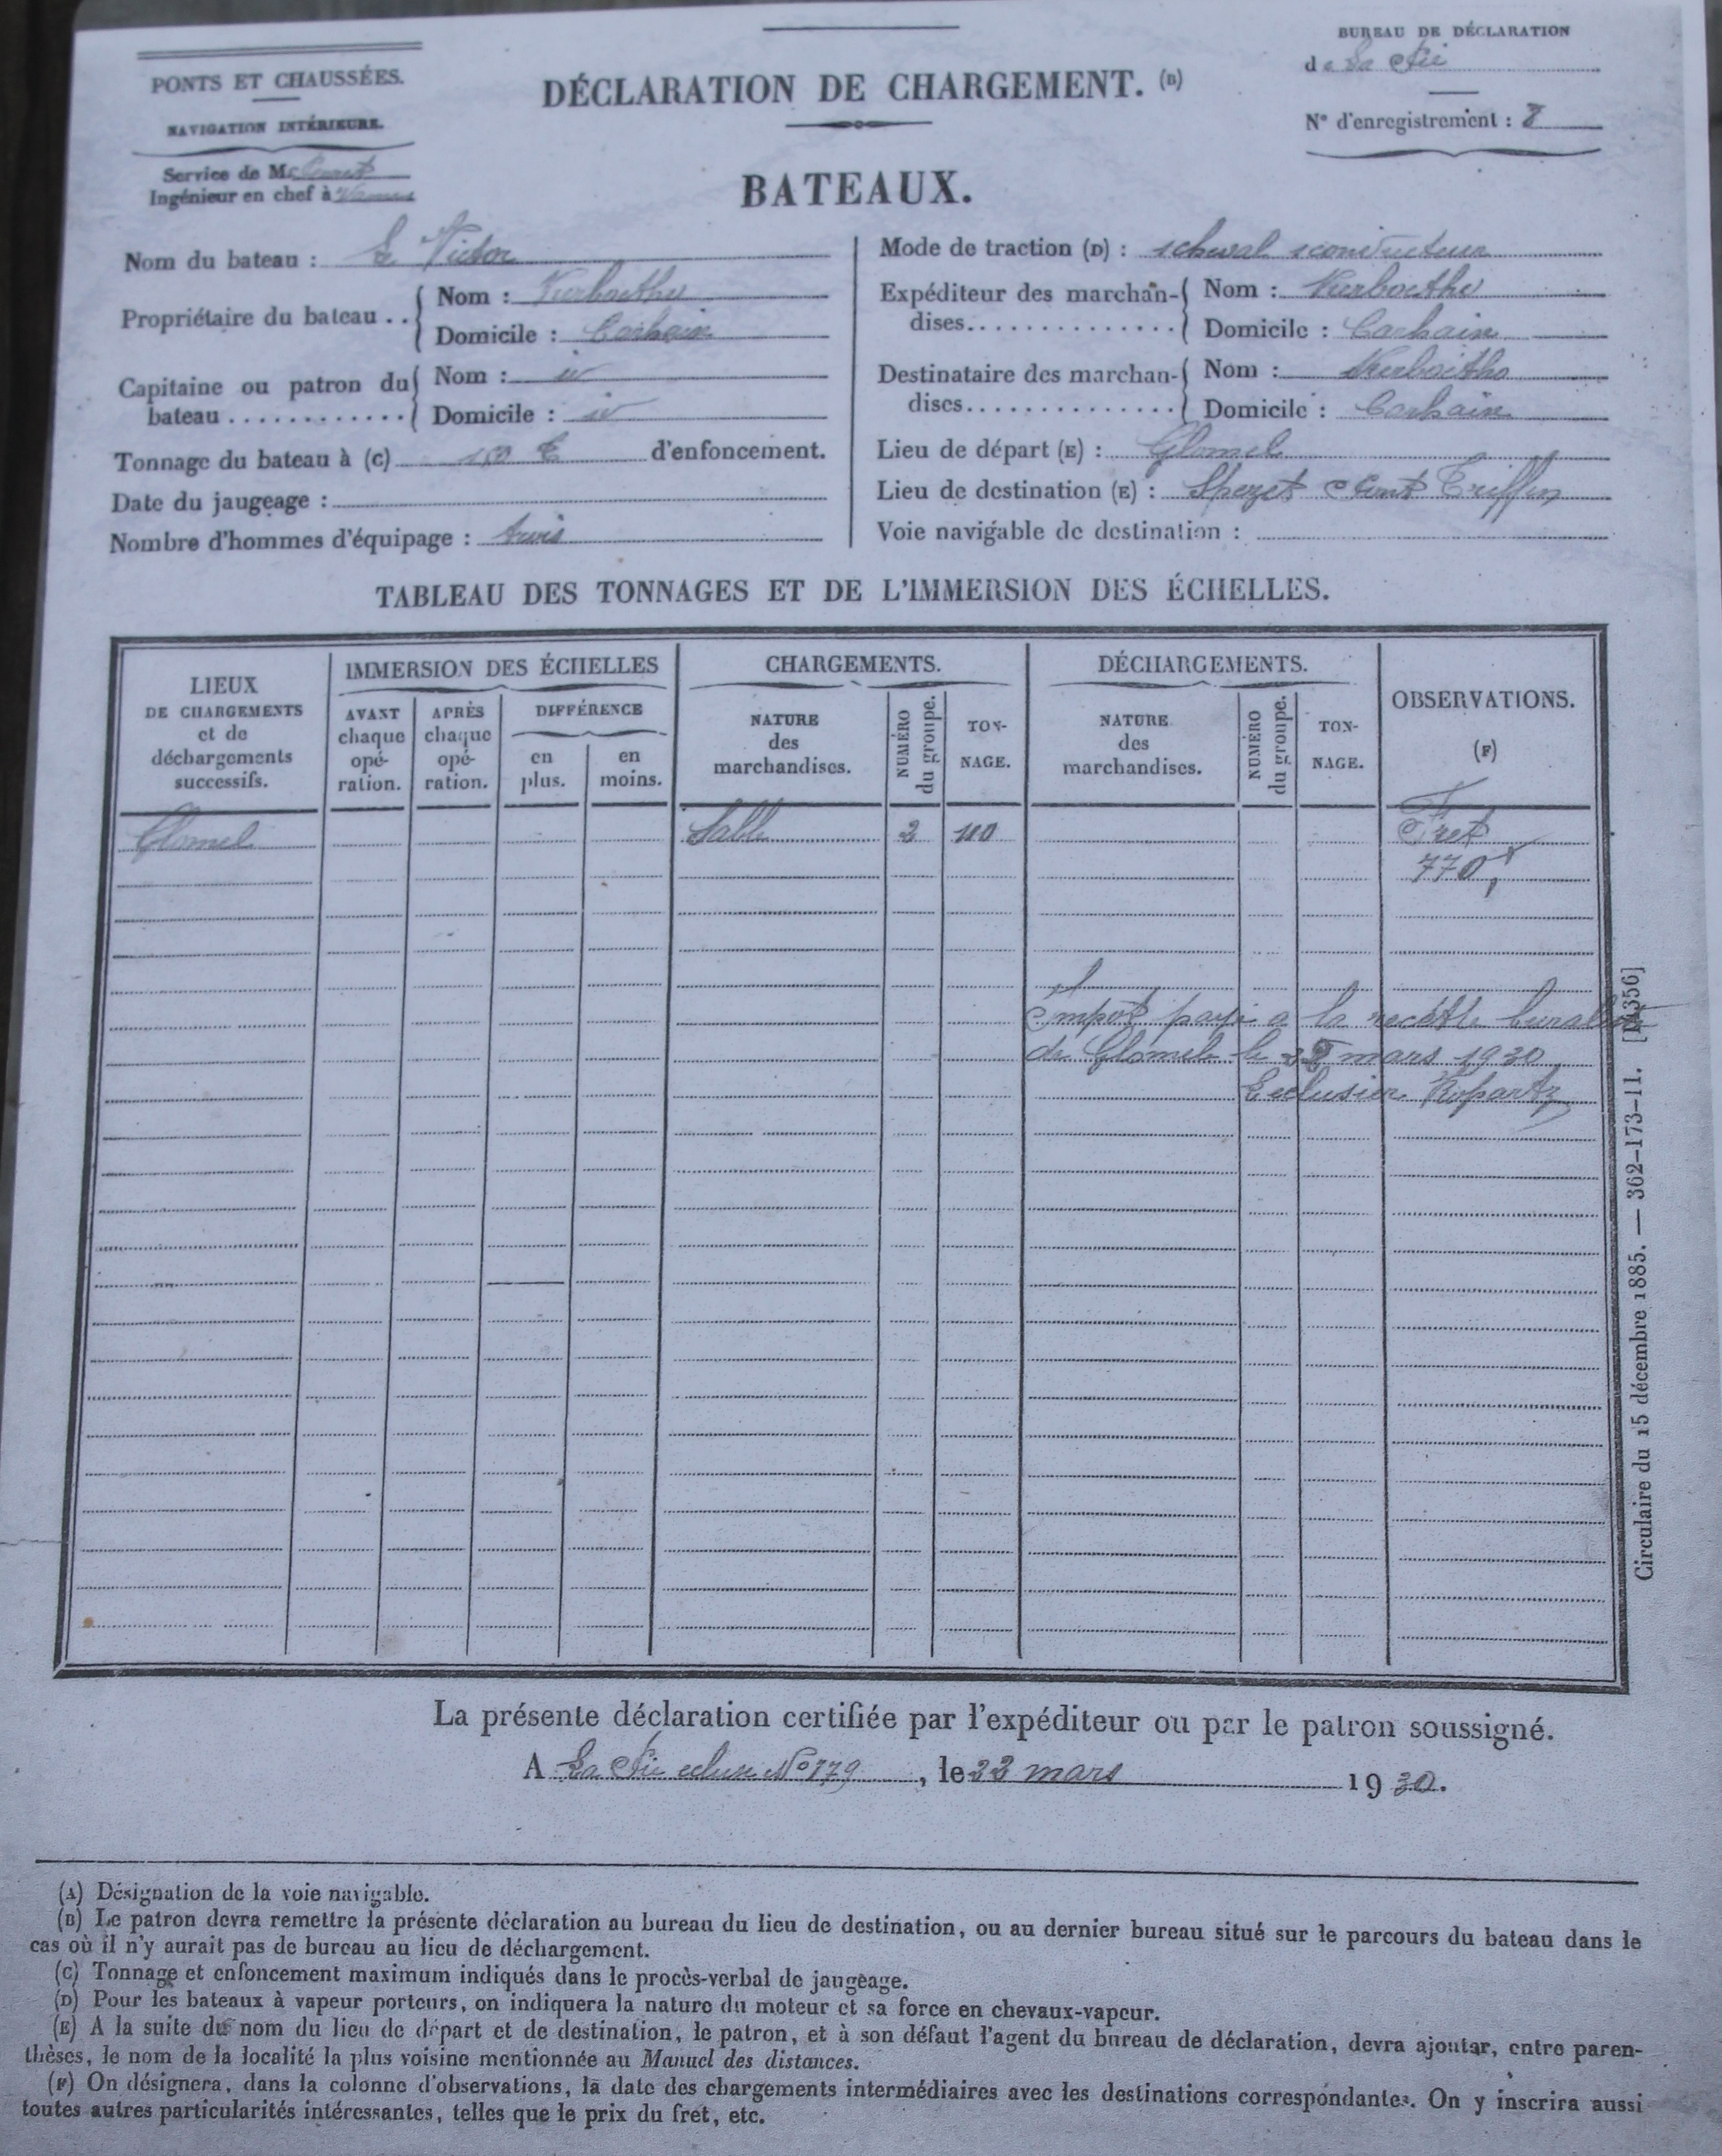 PONTS ET CHAUSSÉES.
NAVIGATION INTÉRIEURE.
Service de M.
Ingénieur en chef à
DÉCLARATION DE CHARGEMENT. (B)
BATEAUX.
BUREAU DE DÉCLARATION
de La Pie
N° d'enregistrement : 8
Nom du bateau : Le Victor
Propriétaire du bateau .. Nom : Kerboetho
Domicile : Carhaix
Capitaine ou patron du bateau ............ Nom : id
Domicile : id
Tonnage du bateau à (C) d'enfoncement.
Date du jaugeage :
Nombre d'hommes d'équipage : trois
Mode de traction (D) : 1 cheval 1 conducteur
Expéditeur des marchandises.............. Nom : Kerboetho
Domicile : Carhaix
Destinataire des marchandises.............. Nom : Kerboetho
Domicile : Carhaix
Lieu de départ (E) : Glomel
Lieu de destination (E) : Spezet Pont Triffen
Voie navigable de destination :
TABLEAU DES TONNAGES ET DE L'IMMERSION DES ÉCHELLES.
LIEUX
DE CHARGEMENTS
et de
déchargements
successifs.
IMMERSION DES ÉCHELLES
AVANT
chaque
opé-
ration.
APRÈS
chaque
opé-
ration.
DIFFÉRENCE
en
plus.
en
moins.
CHARGEMENTS.
NATURE
des
marchandises.
NUMÉRO
du groupe.
TON-
NAGE.
DÉCHARGEMENTS.
NATURE
des
marchandises.
NUMÉRO
du groupe.
TON-
NAGE.
OBSERVATIONS.
(F)
Glomel Sable 2 110 Fret
770f
Impot payé a la recette buraliste
de Glomel le mars 1930
Eclusier Ropartz
Circulaire du 15 décembre 1885. — 362-173-11. [14356]
La présente déclaration certifiée par l'expéditeur ou par le patron soussigné.
A La Pie ecluse N° 179, le 22 mars 1930.
(A) Désignation de la voie navigable.
(B) Le patron devra remettre la présente déclaration au bureau du lieu de destination, ou au dernier bureau situé sur le parcours du bateau dans le
cas où il n'y aurait pas de bureau au lieu de déchargement.
(C) Tonnage et enfoncement maximum indiqués dans le procès-verbal de jaugeage.
(D) Pour les bateaux à vapeur porteurs, on indiquera la nature du moteur et sa force en chevaux-vapeur.
(E) A la suite du nom du lieu de départ et de destination, le patron, et à son défaut l'agent du bureau de déclaration, devra ajouter, entre paren-
thèses, le nom de la localité la plus voisine mentionnée au Manuel des distances.
(F) On désignera, dans la colonne d'observations, la date des chargements intermédiaires avec les destinations correspondantes. On y inscrira aussi
toutes autres particularités intéressantes, telles que le prix du fret, etc.